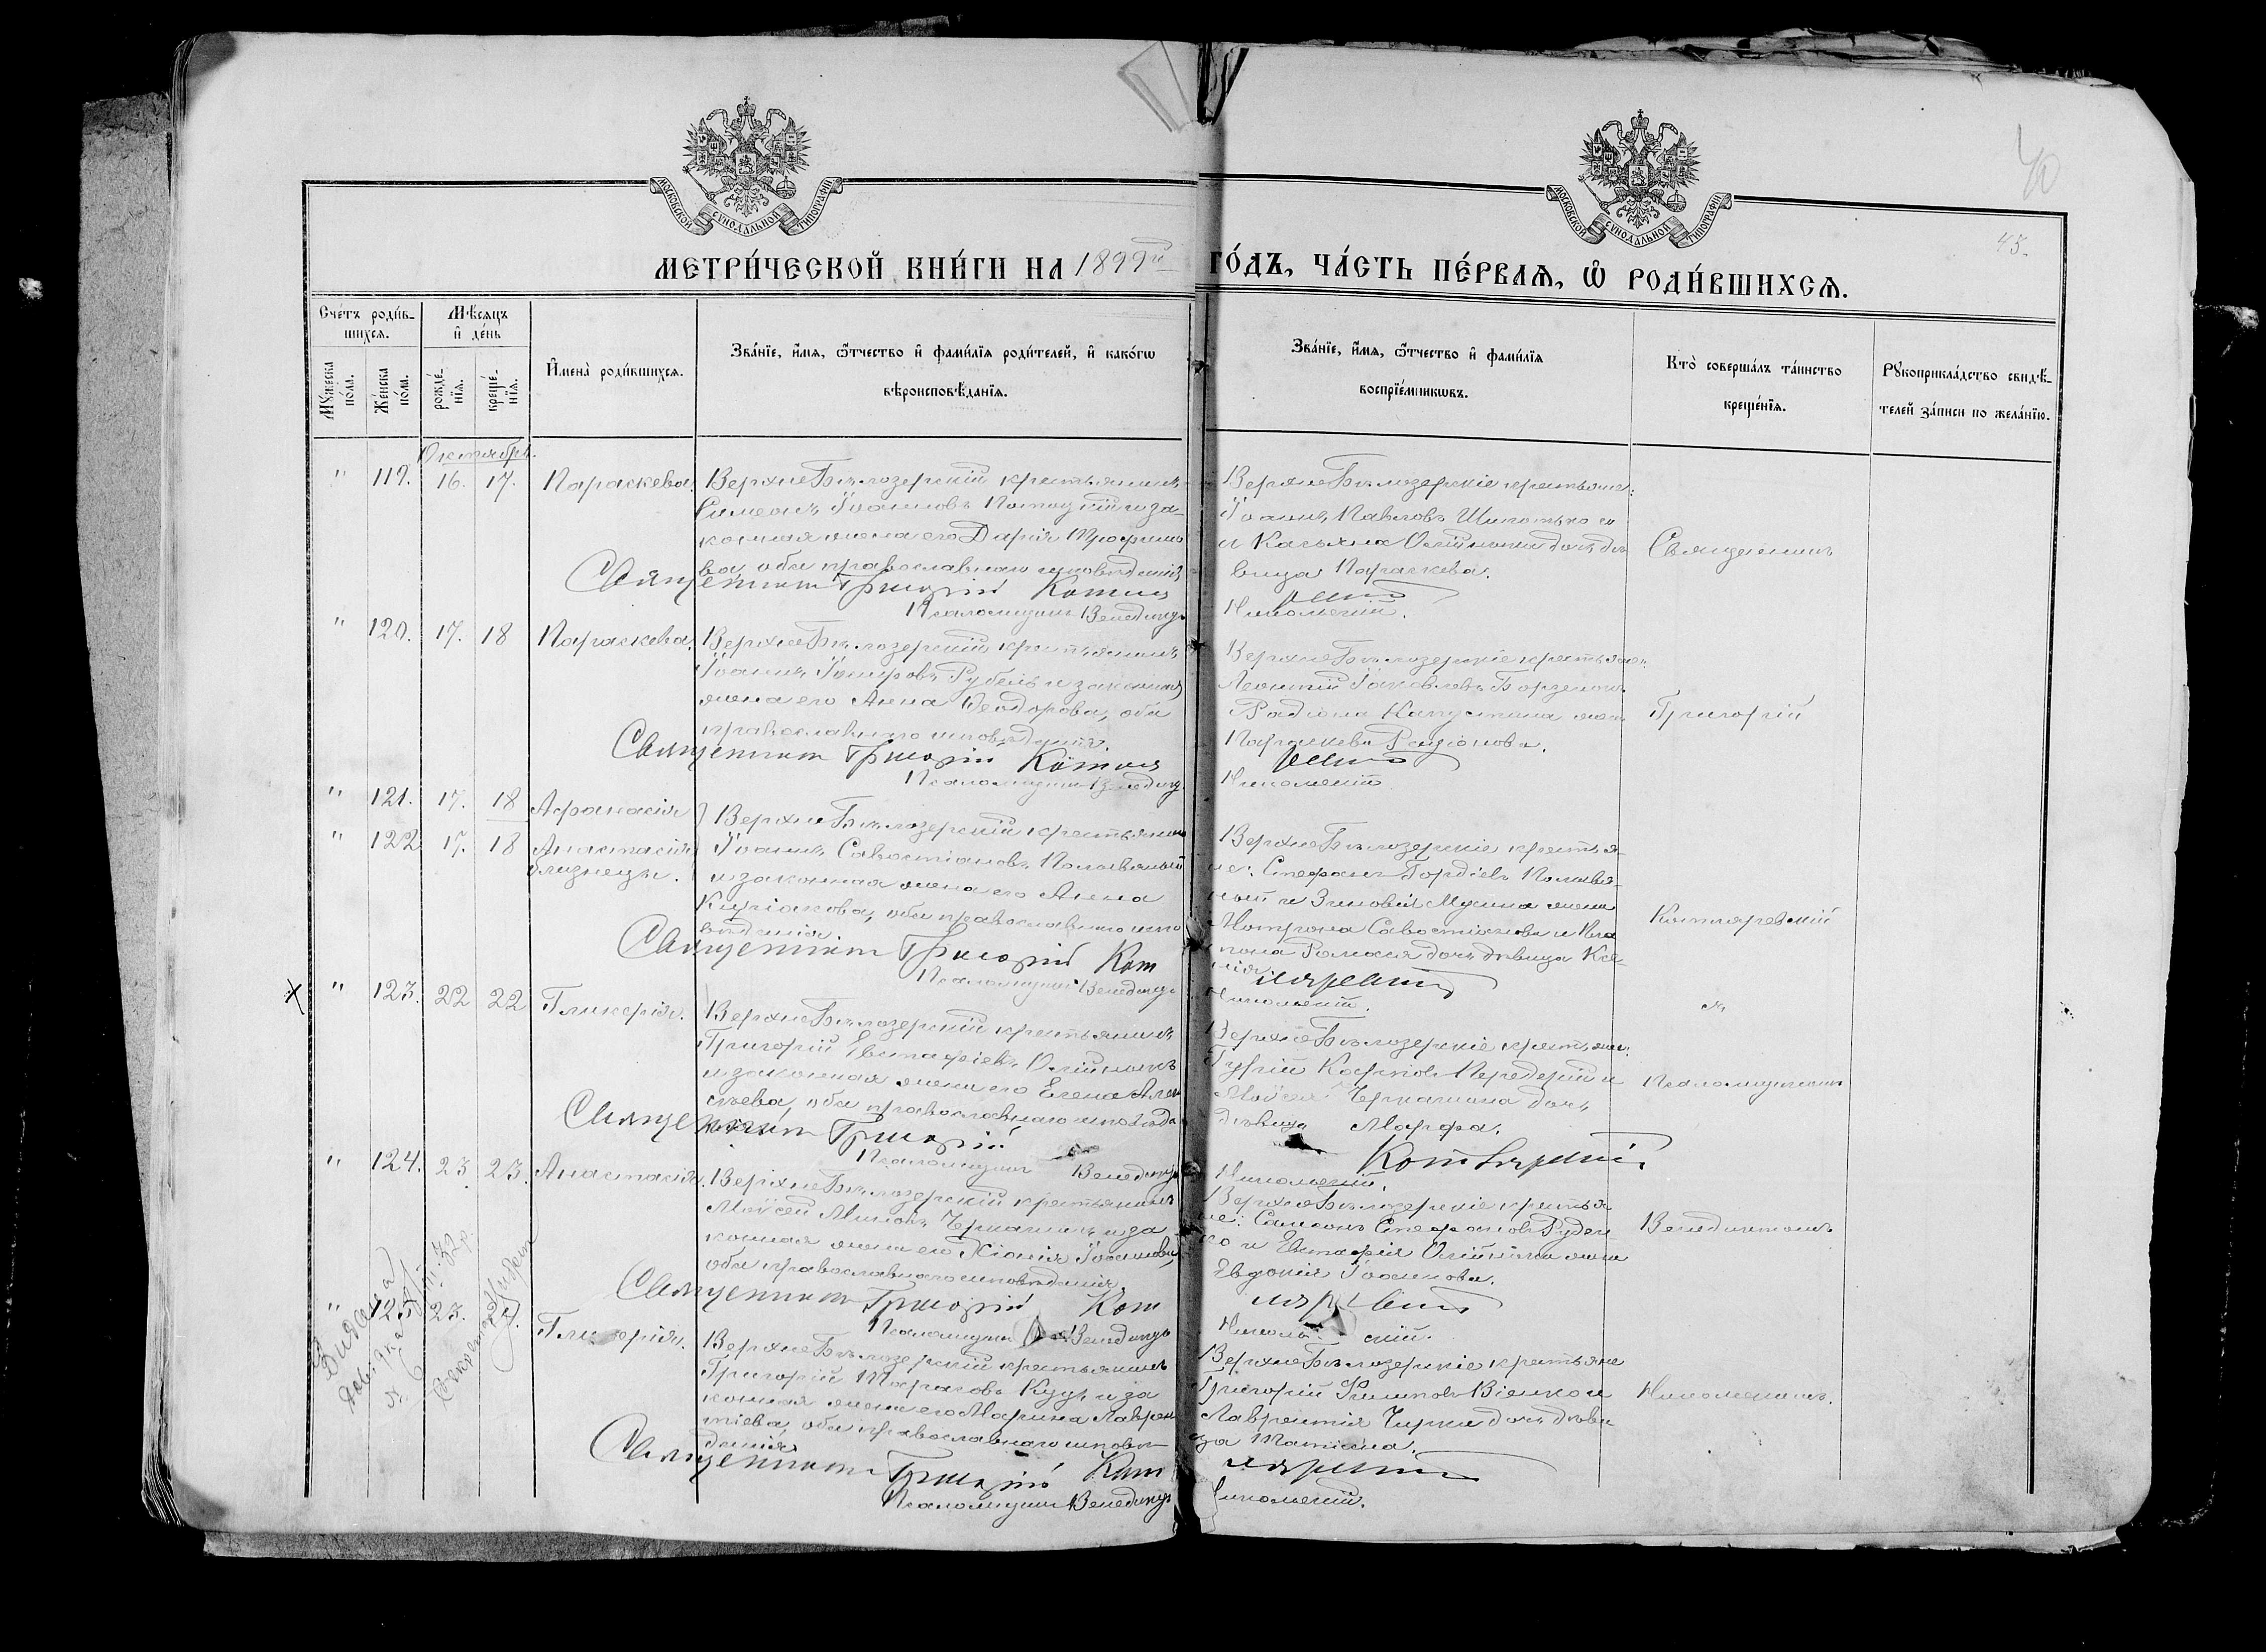 40
45.
МОСКОВСКОЙ СѴНОДАЛЬНОЙ ТИПОГРАФІИ
МОСКОВСКОЙ СѴНОДАЛЬНОЙ ТИПОГРАФІИ
МЕТРИ́ЧЕСКОЙ КНИ́ГИ НА 1899й ГО́ДЪ, ЧА́СТЬ ПЕ́РВАѦ, Ѡ҆ РОДИ́ВШИХСѦ.
Сче́тъ роди́в-
шихсѧ.
Мѣ́сѧцъ
и҆ де́нь
Мꙋ́жеска
по́ла.
Же́нска
по́ла.
рожде́-
нїѧ.
креще́-
нїѧ.
И҆мена̀ роди́вшихсѧ.
Зва́нїе, и҆́мѧ, ѻ҆́тчество и҆ фами́лїѧ роди́телей, и҆ како́гѡ
вѣроисповѣ́данїѧ.
Зва́нїе, и҆́мѧ, ѻ҆́тчество и҆ фами́лїѧ
воспрїе́мникѡвъ.
Кто̀ соверша́лъ та́инство
креще́нїѧ.
Рꙋкоприкла́дство свидѣ́-
телей за́писи по жела́нїю.
Октябрь.
" 119. 16. 17. Параскева.
ВерхнеБѣлозерскій крестьянинъ
Симеонъ Іоанновъ и за-
конная жена его Дарія Трофимо
ва, оба православнаго исповѣданія
Священникъ Григорій Котля
Псаломщикъ Венедикт
ВерхнеБѣлозерскіе крестьяне:
Іоаннъ Павловъ
и Касьяна Олійника дочь дѣ
вица Параскева.
ревскій
Никольскій.
Священникъ
" 120. 17. 18 Параскева.
ВерхнеБѣлозерскій крестьянинъ
Іоаннъ Рубель и законная
жена его Анна Ѳеодорова, оба
православнаго исповѣданія.
Священникъ Григорій Котля
Псаломщикъ Венедикт
ВерхнеБѣлозерскіе крестьяне:
Леонтій Іаковлевъ
Радіона Капустина жена
Параскева
ревскій
Никольскій
Григорій
" 121. 17. 18 Афанасія
" 122 17. 18 Анастасія
близнецы.
ВерхнеБѣлозерскій крестьянинъ
Іоаннъ Савостіановъ Поливяный
и законная жена его Анна
Киріакова, оба православнаго испо
вѣданія.
Священникъ Григорій Кот
Псаломщикъ Венедикт
ВерхнеБѣлозерскіе крестья-
не: Стефанъ Гордіевъ Поливя-
ный и Зиновія жена
Мотрона Савостіанова и
дочь дѣвица Ксе-
нія.
ляревскій
Никольскій.
Котляревскій
и
" 123. 22 22 Гликерія.
ВерхнеБѣлозерскій крестьянинъ
Григорій Евстафіевъ Олійникъ
и законная жена его Елена Алек
сѣева, оба православнаго исповѣда
нія.
Священникъ Григорій
Псаломщикъ Венедикт
ВерхнеБѣлозерскіе крестьяне:
Гурій Передерій и
Мойсея Черкашина дочь
дѣвица Марфа.
Котляревскій
Никольскій.
Псаломщикомъ
" 124. 23. 23. Анастасія.
ВерхнеБѣлозерскій крестьянинъ
Мойсей Черкашинъ и за
конная жена его Хіонія Іоаннова,
оба православнаго исповѣданія.
Священникъ Григорій Кот
Псаломщикъ Венедикт
ВерхнеБѣлозерскіе крестья
не: Самсонъ Стефановъ Руден
ко и Евстафія Олійника жена
Евдокія Іоаннова.
ляревскій
Никольскій.
Венедиктомъ
" 125. 23. Гликерія.
ВерхнеБѣлозерскій крестьянинъ
Григорій Тарасовъ Куцъ и за
конная жена его Марина Лаврен
тіева, оба православнаго исповѣ-
данія.
Священникъ Григорій Кот
Псаломщикъ Венедикт
ВерхнеБѣлозерскіе крестьяне
Григорій Филиповъ и
Лаврентія Чирки дочь дѣви
ца Татіана.
ляревскій
Никольскій.
Никольскимъ.
Видана